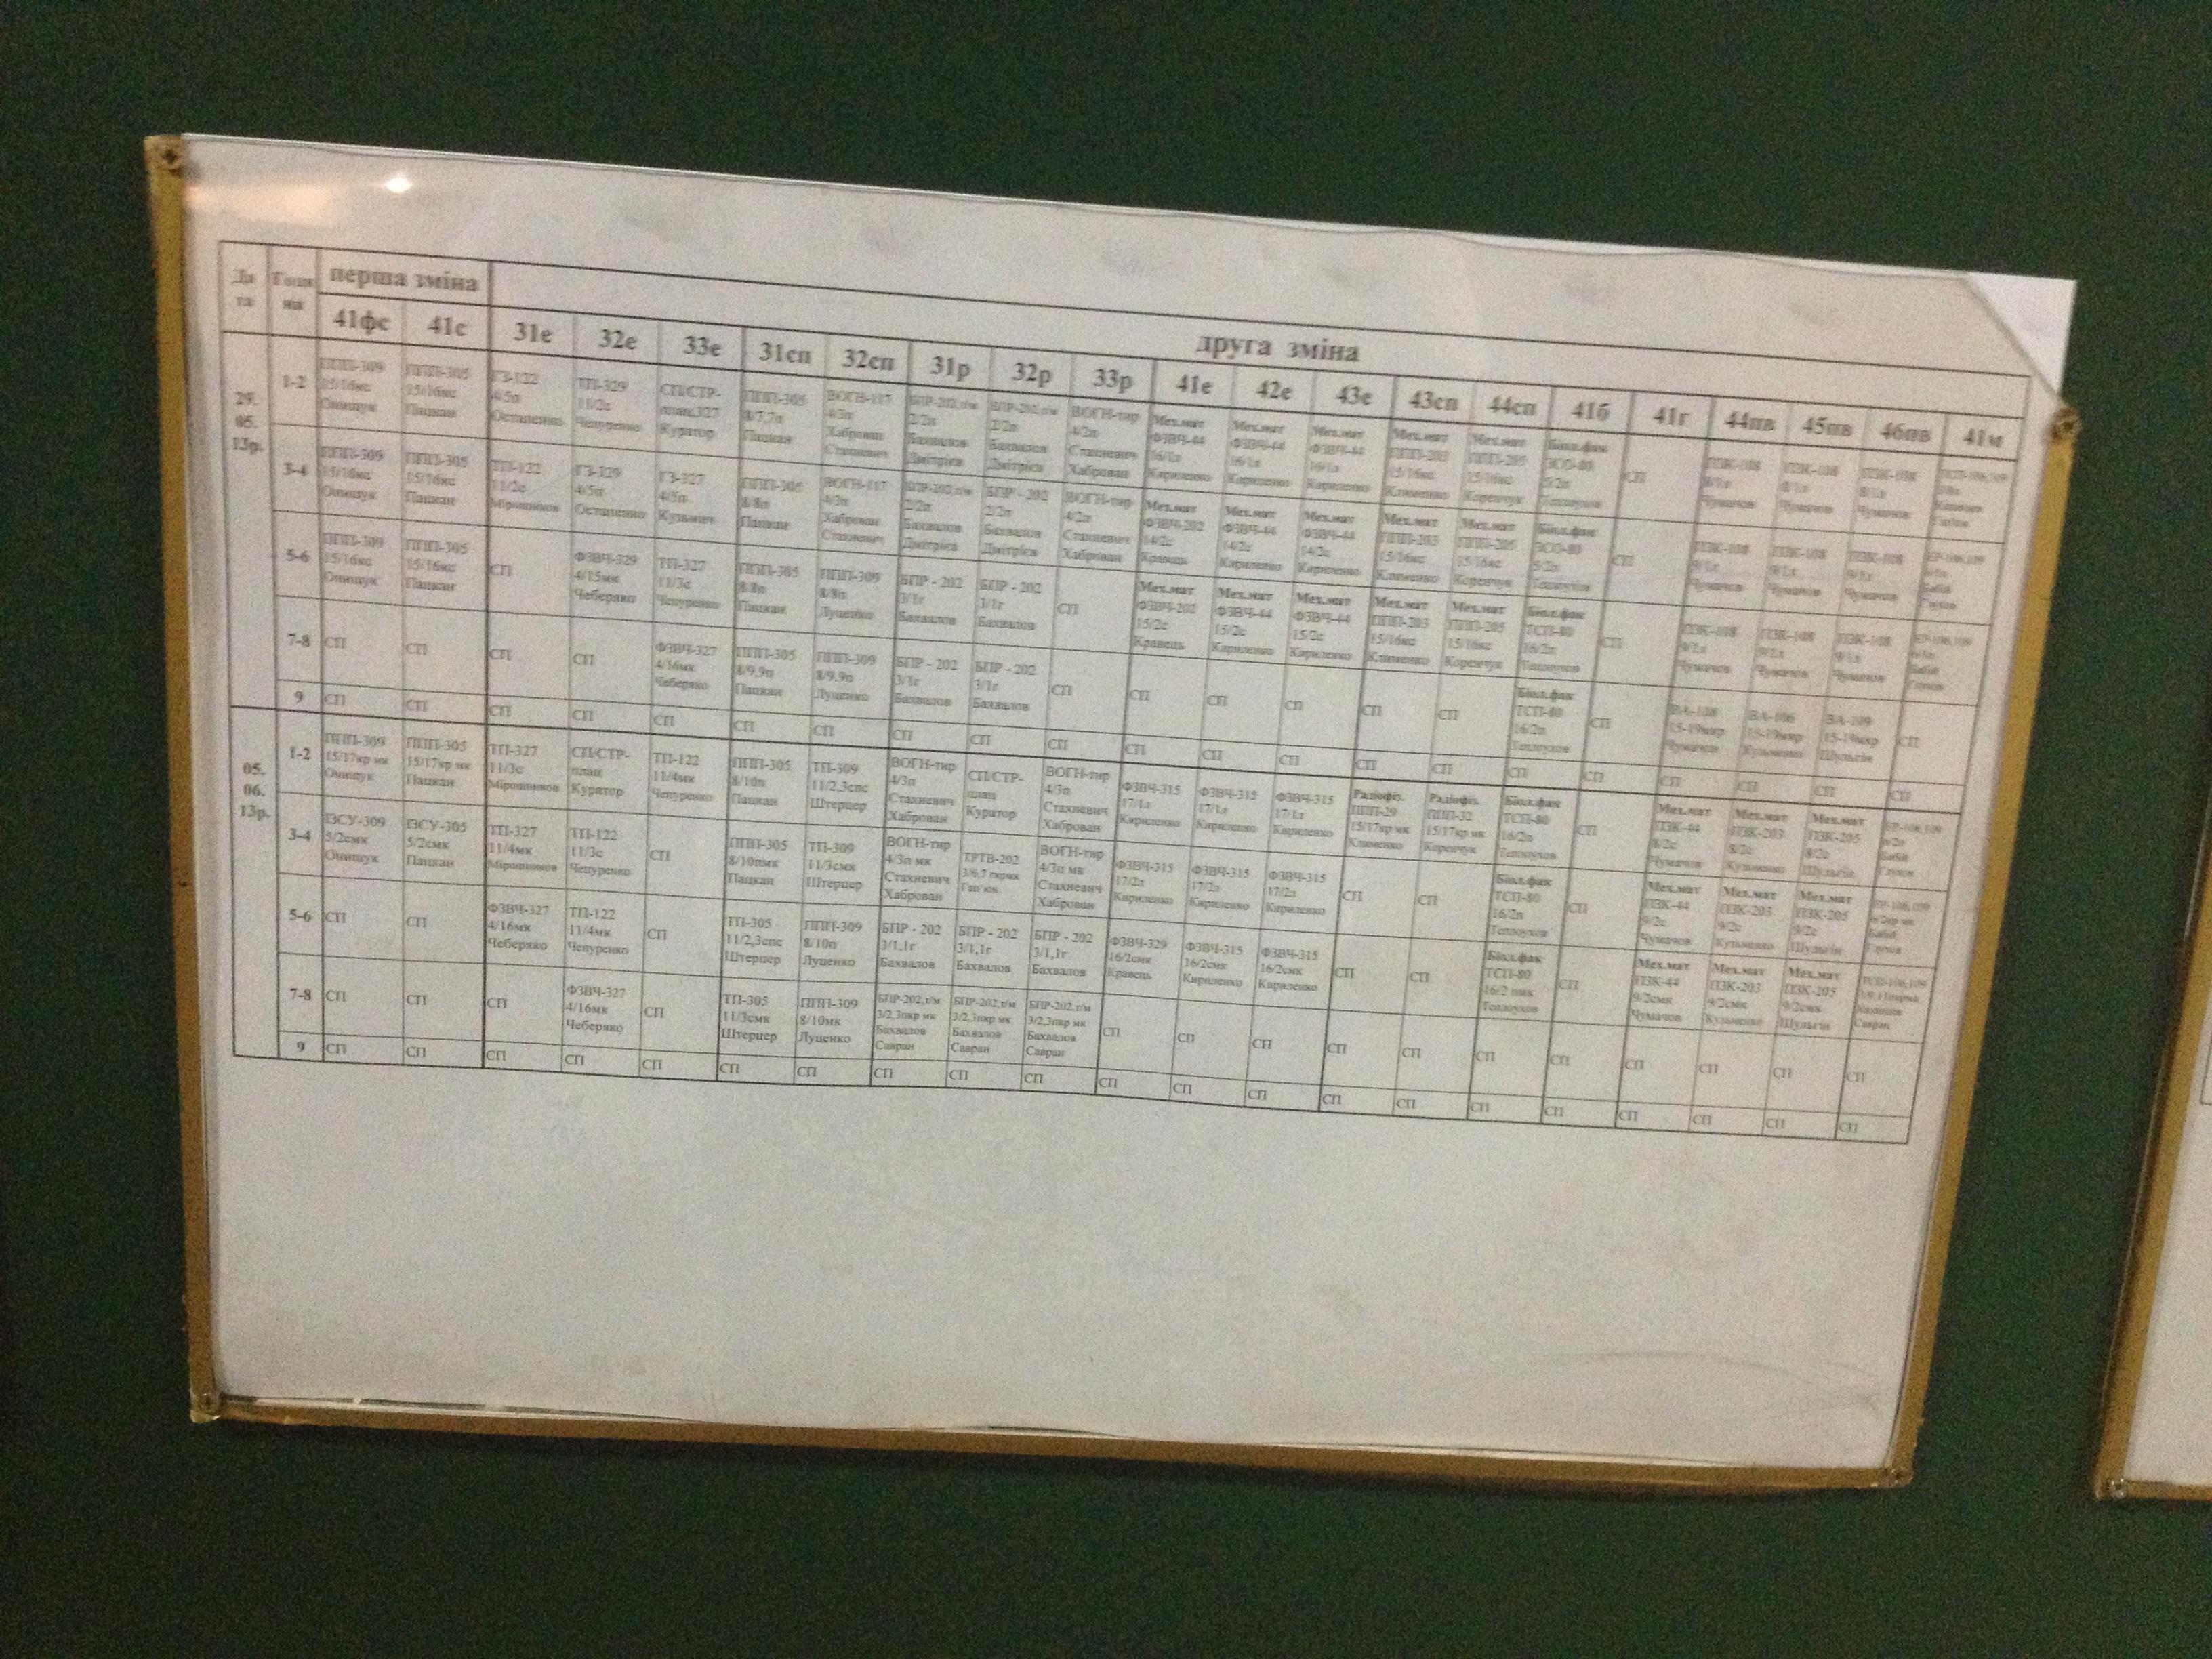 Да та Годи ни перша зміна друга зміна
41фс 41с 31е 32е 33е 31сп 32сп 31р 32р 33р 41е 42е 43е 43сп 44сп 41б 41г 44пв 45пв 46пв 41м
29. 05. 13р.
1-2
ППП-309 15/16кс Онищук
ППП-305 15/16кс Пацкан
ГЗ-122 4/5п Остапенко
ТП-329 11/2с Чепуренко
СП/СТР-план,327 Куратор
ППП-305 8/7,7п Пацкан
ВОГН-117 4/3п Хаброван Стахневич
БПР-202,т/м 2/2п Бахвалов Дмітрієв
БПР-202,т/м 2/2п Бахвалов Дмітрієв
ВОГН-тир 4/2п Стахневич Хаброван
Мех.мат ФЗВЧ-44 16/1л Кириленко
Мех.мат ФЗВЧ-44 16/1л Кириленко
Мех.мат ФЗВЧ-44 16/1л Кириленко
Мех.мат ППП-203 15/16кс Клименко
Мех.мат ППП-205 15/16кс Коренчук
Біол.фак ЗСО-80 5/2п Теплоухов
СП
ПЗК-108 8/1л Чумачов
ПЗК-108 8/1л Чумачов
ПЗК-108 8/1л Чумачов
3-4
ППП-309 15/16кс Онищук
ППП-305 15/16кс Пацкан
ТП-122 11/2с Мірошников
ГЗ-329 4/5п Остапенко
ГЗ-327 4/5п Кузьмич
ППП-305 8/8п Пацкан
ВОГН-117 4/3п Хаброван Стахневич
БПР-202,т/м 2/2п Бахвалов Дмітрієв
БПР - 202 2/2п Бахвалов Дмітрієв
ВОГН-тир 4/2п Стахневич Хаброван
Мех.мат ФЗВЧ-202 14/2с Кравець
Мех.мат ФЗВЧ-44 14/2с Кириленко
Мех.мат ФЗВЧ-44 14/2с Кириленко
Мех.мат ППП-203 15/16кс Клименко
Мех.мат ППП-205 15/16кс Коренчук
Біол.фак ЗСО-80 5/2п Теплоухов
СП
ПЗК-108 9/1л Чумачов
ПЗК-108 9/1л Чумачов
ПЗК-108 9/1л Чумачов
5-6
ППП-309 15/16кс Онищук
ППП-305 15/16кс Пацкан
СП
ФЗВЧ-329 4/15мк Чеберяко
ТП-327 11/3с Чепуренко
ППП-305 8/8п Пацкан
ППП-309 8/8п Луценко
БПР - 202 3/1г Бахвалов
БПР - 202 3/1г Бахвалов
СП
Мех.мат ФЗВЧ-202 15/2с Кравець
Мех.мат ФЗВЧ-44 15/2с Кириленко
Мех.мат ФЗВЧ-44 15/2с Кириленко
Мех.мат ППП-203 15/16кс Клименко
Мех.мат ППП-205 15/16кс Коренчук
Біол.фак ТСП-80 16/2п Теплоухов
СП
ПЗК-108 9/1л Чумачов
ПЗК-108 9/1л Чумачов
ПЗК-108 9/1л Чумачов
7-8
СП
СП
СП
СП
ФЗВЧ-327 4/16мк Чеберяко
ППП-305 8/9,9п Пацкан
ППП-309 8/9,9п Луценко
БПР - 202 3/1г Бахвалов
БПР - 202 3/1г Бахвалов
СП
СП
СП
СП
СП
СП
Біол.фак ТСП-80 16/2п Теплоухов
СП
ВА-108 Чумачов
ВА-106 Кузьменко
ВА-109 Шульгін
СП
9 СП СП СП СП СП СП СП СП СП СП СП СП СП СП СП СП СП СП СП СП СП
05. 06. 13р.
1-2
ППП-309 15/17кр мк Онищук
ППП-305 15/17кр мк Пацкан
ТП-327 11/3с Мірошников
СП/СТР-план Куратор
ТП-122 11/4мк Чепуренко
ППП-305 8/10п Пацкан
ТП-309 11/2,3спс Штерцер
ВОГН-тир 4/3п Стахневич Хаброван
СП/СТР-план Куратор
ВОГН-тир 4/3п Стахневич Хаброван
ФЗВЧ-315 17/1л Кириленко
ФЗВЧ-315 17/1л Кириленко
ФЗВЧ-315 17/1л Кириленко
Радіофіз. ППП-29 15/17кр мк Клименко
Радіофіз. ППП-32 15/17кр мк Коренчук
Біол.фак ТСП-80 16/2п Теплоухов
СП
Мех.мат ПЗК-44 8/2с Чумачов
Мех.мат ПЗК-203 8/2с Кузьменко
Мех.мат ПЗК-205 8/2с Шульгін
3-4
ІЗСУ-309 5/2смк Онищук
ІЗСУ-305 5/2смк Пацкан
ТП-327 11/4мк Мірошников
ТП-122 11/3с Чепуренко
СП
ППП-305 8/10пмк Пацкан
ТП-309 11/3смк Штерцер
ВОГН-тир 4/3п мк Стахневич Хаброван
ТРТВ-202
ВОГН-тир 4/3п мк Стахневич Хаброван
ФЗВЧ-315 17/2л Кириленко
ФЗВЧ-315 17/2л Кириленко
ФЗВЧ-315 17/2л Кириленко
СП
СП
Біол.фак ТСП-80 16/2п Теплоухов
СП
Мех.мат ПЗК-44 9/2с Чумачов
Мех.мат ПЗК-203 9/2с Кузьменко
Мех.мат ПЗК-205 9/2с Шульгін
5-6
СП
СП
ФЗВЧ-327 4/16мк Чеберяко
ТП-122 11/4мк Чепуренко
СП
ТП-305 11/2,3спс Штерцер
ППП-309 8/10п Луценко
БПР - 202 3/1,1г Бахвалов
БПР - 202 3/1,1г Бахвалов
БПР - 202 3/1,1г Бахвалов
ФЗВЧ-329 16/2смк Кравець
ФЗВЧ-315 16/2смк Кириленко
ФЗВЧ-315 16/2смк Кириленко
СП
СП
Біол.фак ТСП-80 16/2 пмк Теплоухов
СП
Мех.мат ПЗК-44 9/2смк Чумачов
Мех.мат ПЗК-203 9/2смк Кузьменко
Мех.мат ПЗК-205 9/2смк Шульгін
7-8
СП
СП
СП
ФЗВЧ-327 4/16мк Чеберяко
СП
ТП-305 11/3смк Штерцер
ППП-309 8/10мк Луценко
БПР-202,т/м 3/2,3пкр мк Бахвалов Савран
БПР-202,т/м 3/2,3пкр мк Бахвалов Савран
БПР-202,т/м 3/2,3пкр мк Бахвалов Савран
СП СП СП СП СП СП СП СП СП СП СП
9 СП СП СП СП СП СП СП СП СП СП СП СП СП СП СП СП СП СП СП СП СП